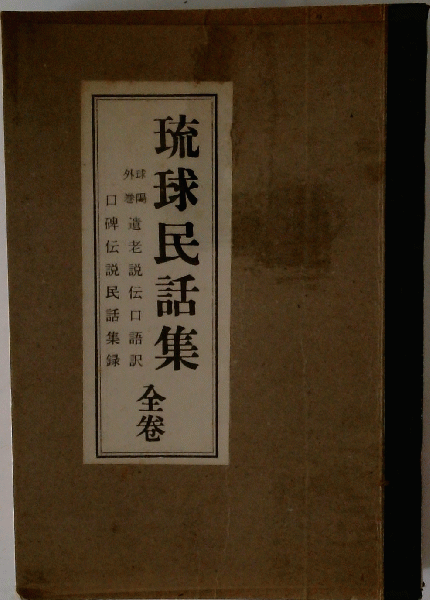 琉球民話集
球陽外巻 遺老説伝口語訳
口碑伝説民話集録
全巻